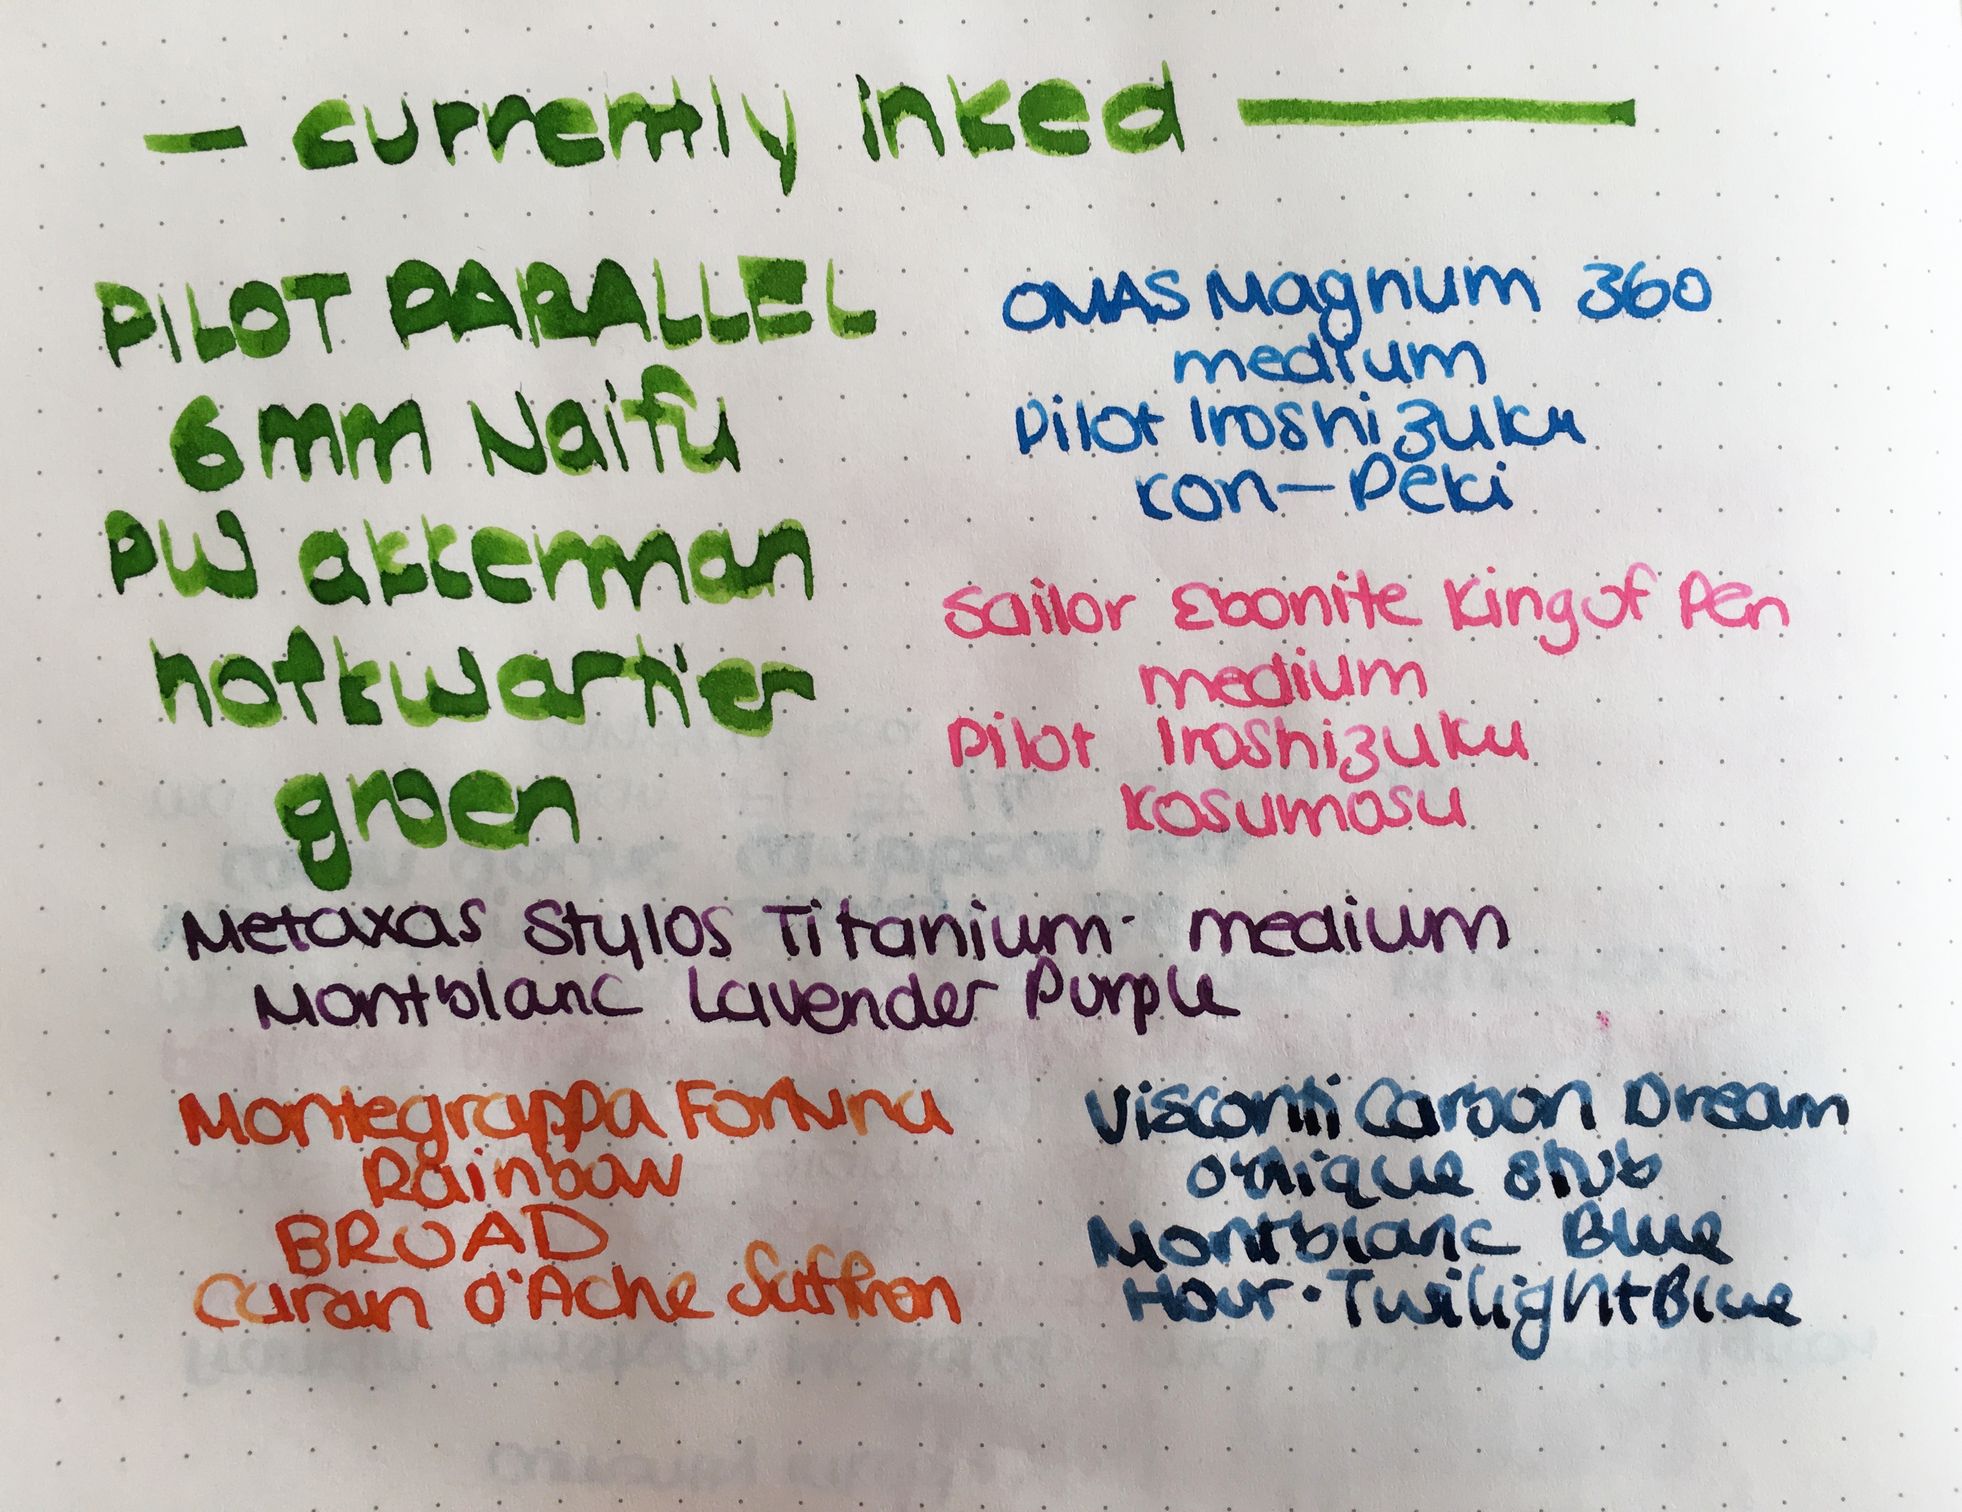 — currently inked —
PILOT PARALLEL
6mm Naifu
PW akkerman
hofkwartier
groen
OMAS Magnum 360
medium
Pilot Iroshizuku
kon-Peki
Sailor Ebonite King of Pen
medium
Pilot Iroshizuku
Kosumosu
Metaxas Stylos Titanium - medium
Montblanc Lavender Purple
Montegrappa Fortuna
Rainbow
BROAD
Caran d'Ache Saffron
Visconti Carbon Dream
oblique stub
Montblanc Blue
Hour · Twilight Blue